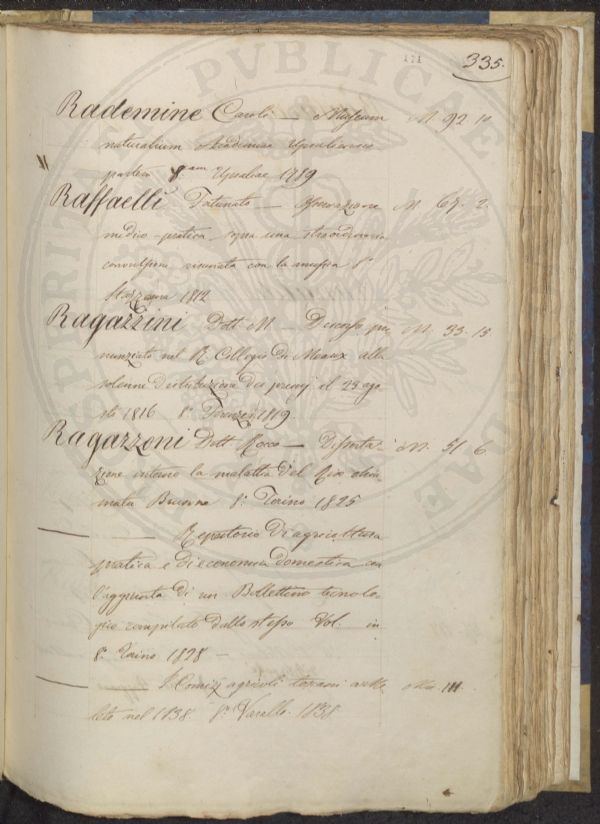 171
335.
Rademine Carolo — Museum M. 92. 10
naturalium Academiae Upsaliensis
partem 8.am Upsaliae 1789
Raffaelli Fortunato — Osservazione M. 67. 2.
medico-pratica sopra una straordinaria
convulsione risanata con la musica 8.°
1812
Ragazzini Dott. M. — Discorso pro M. 33. 15
nunziato nel R. Collegio di Meaux alla
solenne distribuzione dei premj il 23 ago
sto 1816 8.° Firenze 1819.
Ragazzoni Dott. Rocco — Disserta- M. 51. 6.
zione intorno la malattia del Riso chia
mata Brusone 8.° Torino 1825
—— —— Repertorio di agricoltura
pratica e di economia domestica con
l'aggiunta di un Bullettino tecnolo
gico compilato dallo stesso Vol. in
8.° Torino 1828 —
—— —— I Comizj agricoli toscani
nel 1838. 8.° Varallo. 1838
PVBLICAE
PROSPERITATI